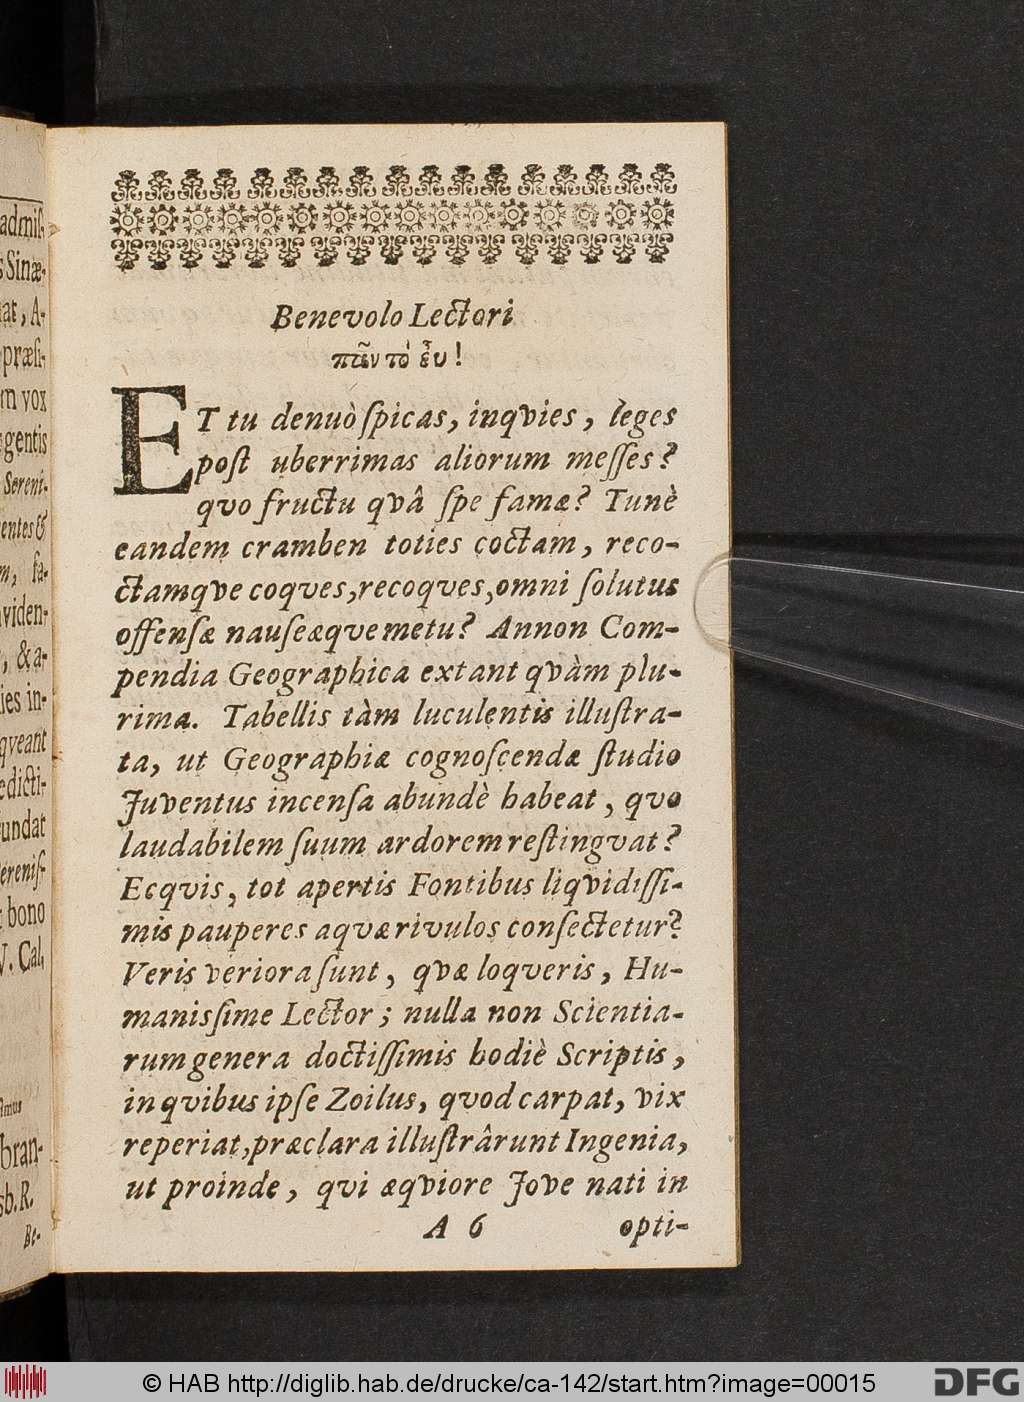 admiſ-
s Sinæ-
at, A-
præſi-
m vox
gentis
Sereni-
entes &
m, fa-
viden-
, & a-
ies in-
qveant
edicti-
undat
ereniſ-
t bono
V. Cal.
ſimus
bran-
sb. R.
Be-
Benevolo Lectori
πᾶν τὸ ἐυ!
ET tu denuò ſpicas, inqvies, leges
poſt uberrimas aliorum meſſes?
qvo fructu qvâ ſpe famæ? Tunè
eandem cramben toties coctam, reco-
ctamqve coqves, recoqves, omni ſolutus
offenſæ nauſeæqve metu? Annon Com-
pendia Geographica extant qvàm plu-
rima. Tabellis tàm luculentis illuſtra-
ta, ut Geographiæ cognoſcendæ ſtudio
Juventus incenſa abundè habeat, qvo
laudabilem ſuum ardorem reſtingvat?
Ecqvis, tot apertis Fontibus liqvidiſſi-
mis pauperes aqvæ rivulos conſectetur?
Veris veriora ſunt, qvæ loqveris, Hu-
manisſime Lector; nulla non Scientia-
rum genera doctiſſimis hodiè Scriptis,
in qvibus ipſe Zoilus, qvod carpat, vix
reperiat, præclara illuſtrârunt Ingenia,
ut proinde, qvi æqviore Jove nati in
A 6 opti-
© HAB http://diglib.hab.de/drucke/ca-142/start.htm?image=00015
DFG